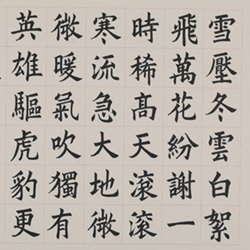 雪壓冬雲白絮
飛萬花紛謝一
時稀髙天滾滾
寒流急大地微
微暖氣吹獨有
英雄驅虎豹更